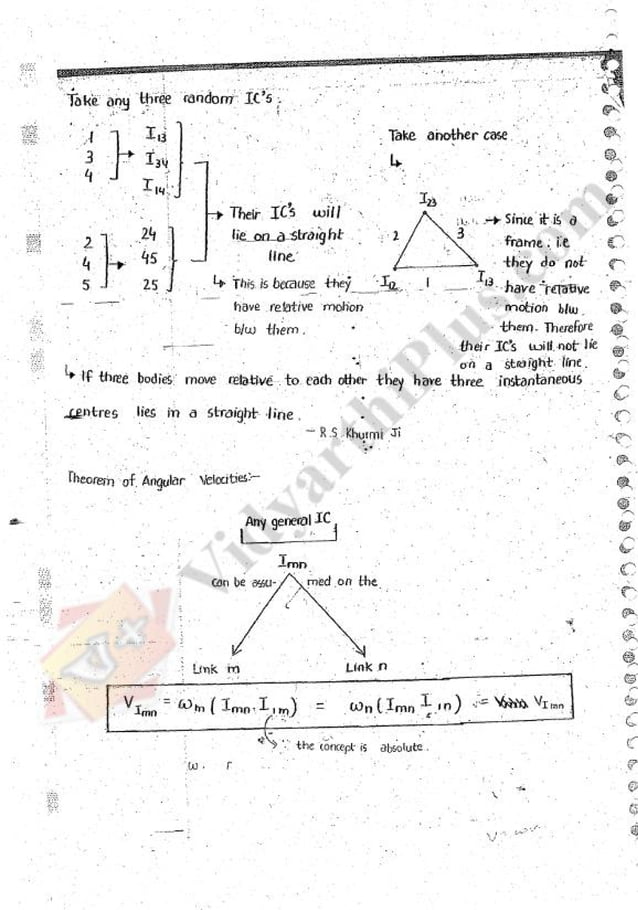 Take any three random IC's.
1
3
4
I13
I34
I14
2
4
5
24
45
25
Their IC's will
lie on a straight
line
This is because they
have relative motion
b/w them.
Take another case
I23
2
3
I12
1
I13
Since it is a
frame. i.e
they do not
have relative
motion b/w
them. Therefore
their IC's will not lie
on a straight line.
If three bodies move relative to each other they have three instantaneous
centres lies in a straight line.
- R.S Khurmi Ji
Theorem of Angular Velocities:-
Any general IC
Imn
can be assu- med on the
Link m
Link n
VImn = ωm (Imn. I1m) = ωn (Imn I1n) = VImn
the concept is absolute.
ω. r
VidyarthiPlus.com
V+